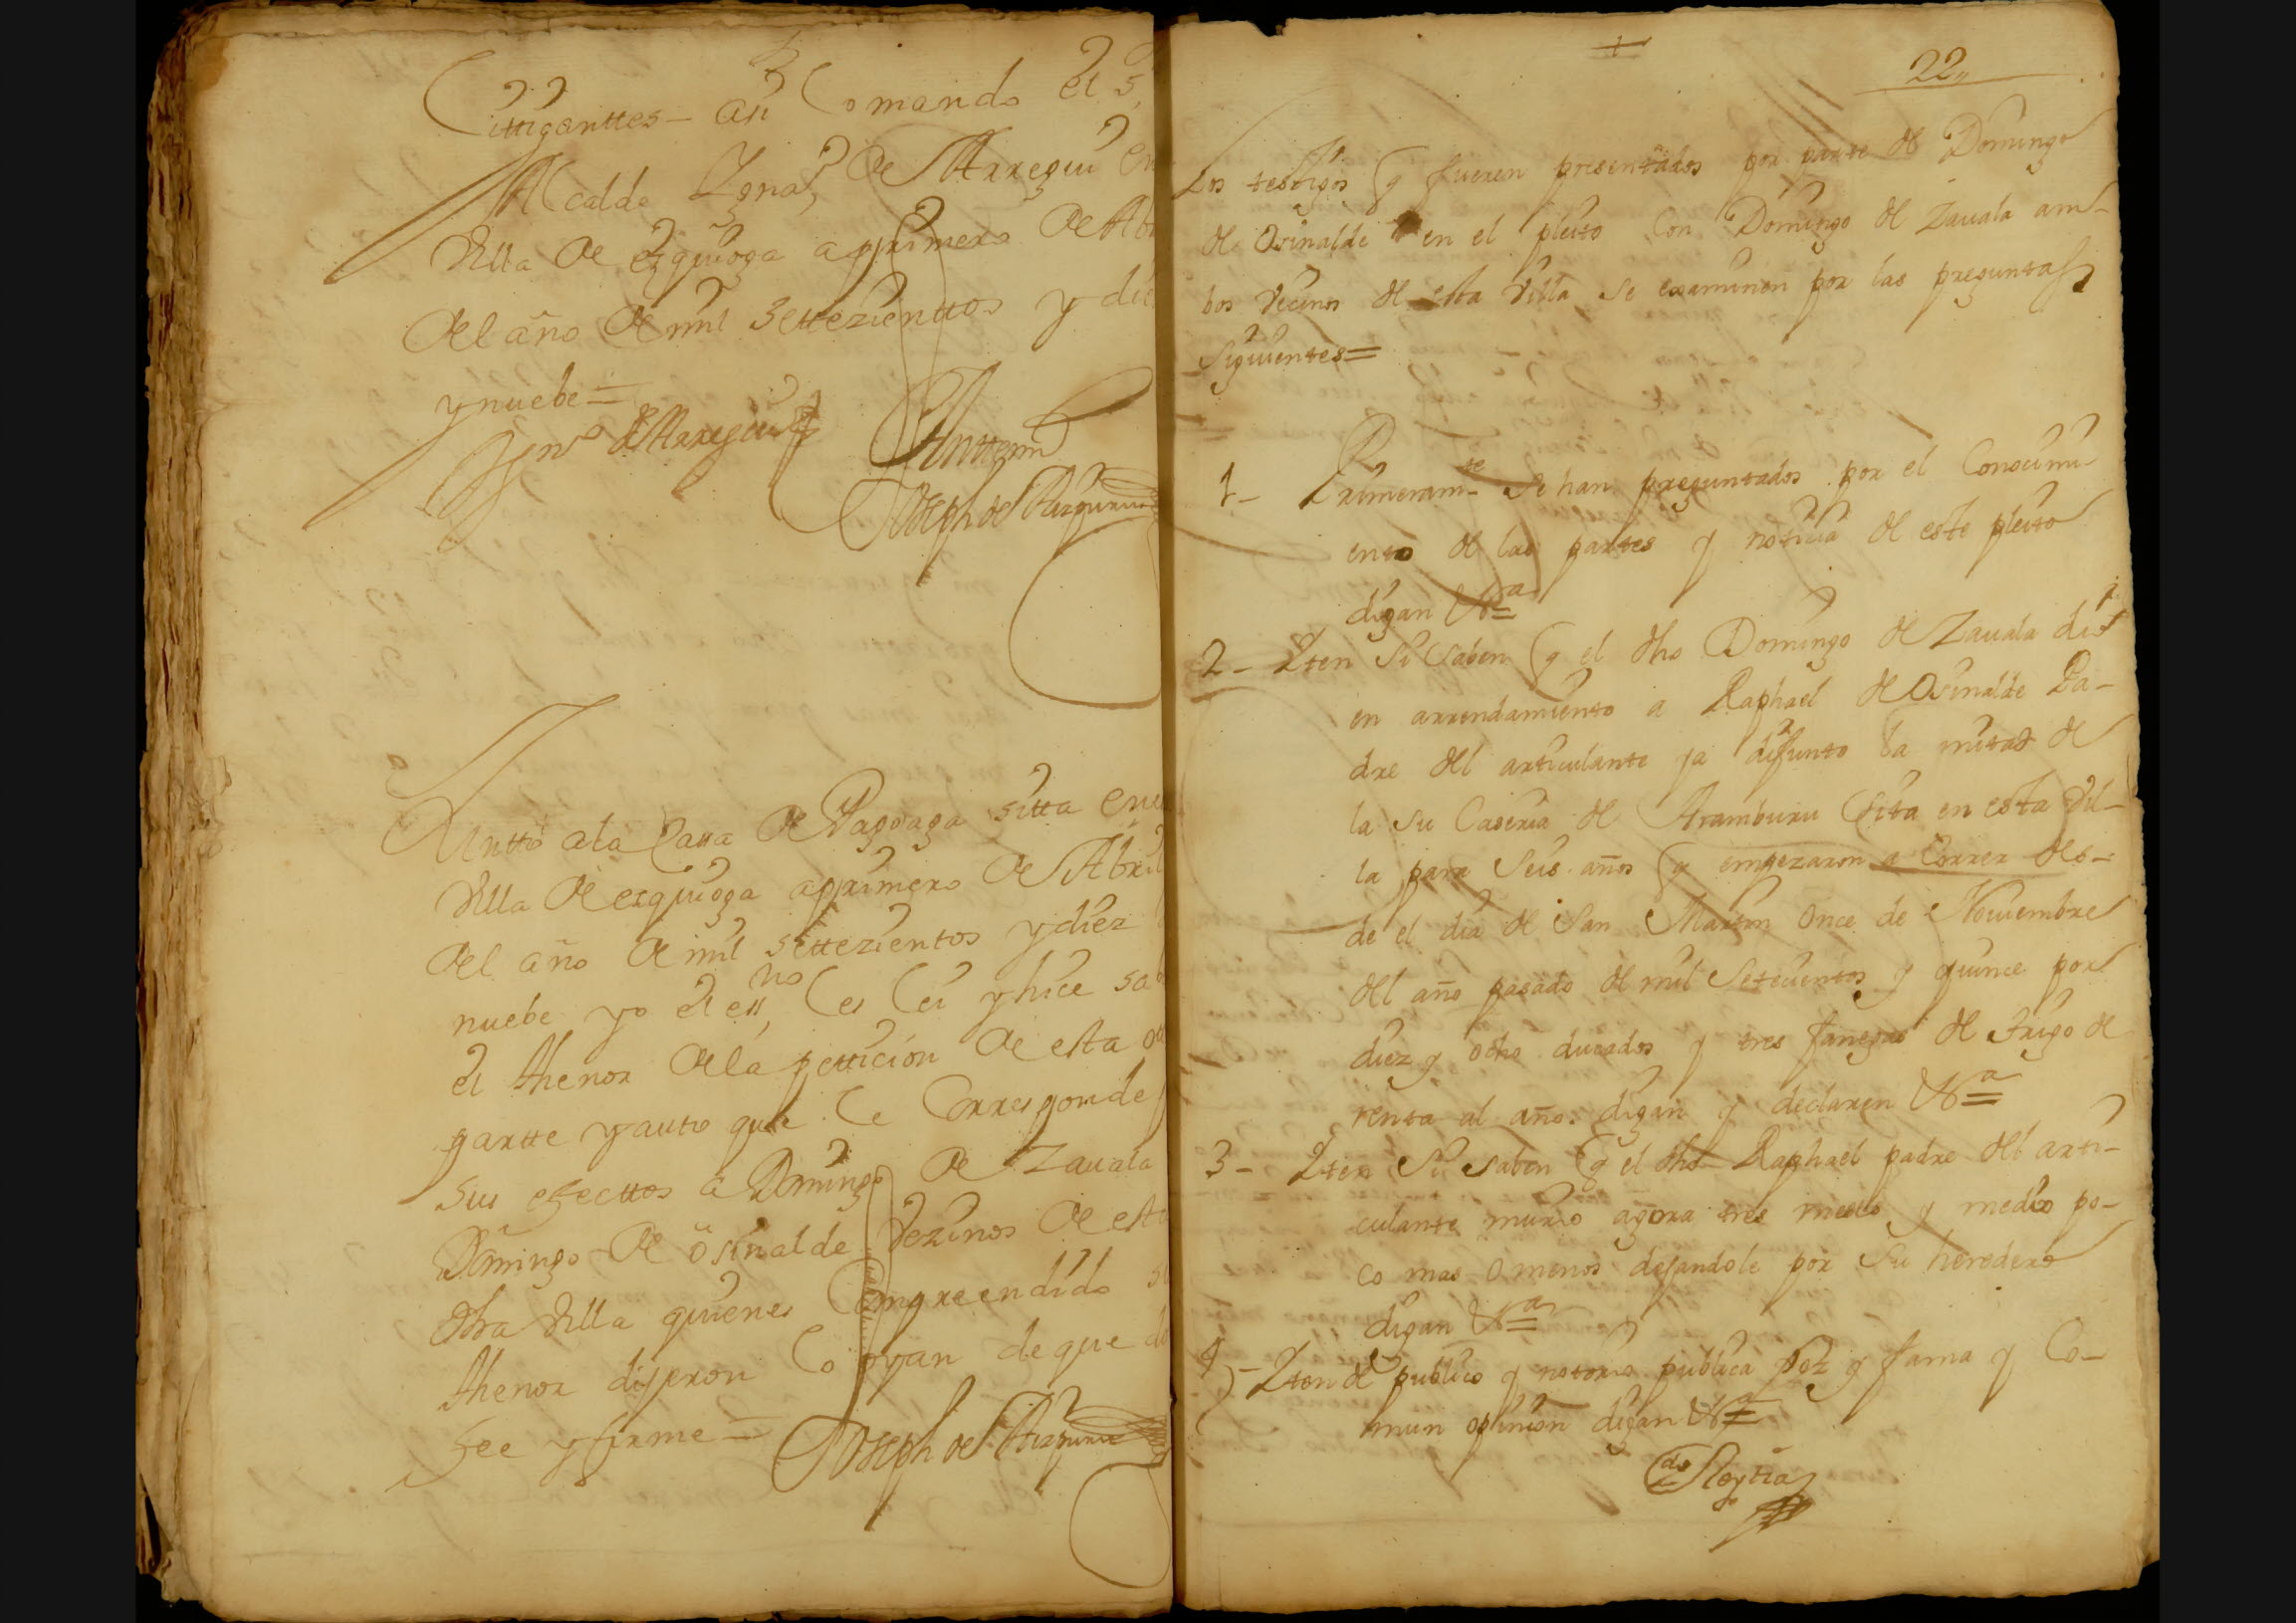 Littiganttes – asi lo mando el S
Alcalde Ygnaº de Arregui en
Villa de ezquioga a pprimero de Abr
del año de mil settezienttos y die
y nuebe =
Ygnº de Arregui
Anttemi
Joseph de Aizpurua
Juntto a la Cassa de Pagoaga sitta en
Villa de ezquioga a pprimero de Abril
del año de mil settezientos y diez
nuebe yo el essno les lei y hice sa
el thenor de la pettición de esta o
partte y auto que le Corresponde p
sus efecttos a Domingo de Zauala
Domingo de osinalde Vezinos de esta
dha Villa quienes Compreendido su
thenor dijeron lo oyan de que do
fee y firme =
Joseph de Aizpurua
22
Los testigos q fueren presentados por parte de Domingo
de Osinalde en el pleito Con Domingo de Zauala am-
bos Vecinos de esta Villa se examinen por las preguntas
Siguientes =
1 – Primeramte se han preguntados por el Conocimi-
ento de las partes y noticia de este pleito
digan &a =
2 – Yten Si saben q el dho Domingo de Zauala dió
en arrendamiento a Raphael de Osinalde Pa-
dre del articulante ya difunto la mitad de
la su Caseria de Aramburu sita en esta Vil-
la para Seis años q empezaron a Correr des-
de el dia de San Martin Once de Nouiembre
del año pasado de mil Setecientos y quince por
diez y ocho ducados y tres fanegas de trigo de
renta al año. digan y declaren &a =
3 – Yten Si saben q el dho Raphael padre del arti-
culante murio agora tres meses y medio po-
co mas o menos dejandole por Su heredero
digan &a =
4 – Yten de publico y notorio publica Voz y fama y Co-
mun opinion digan &a =